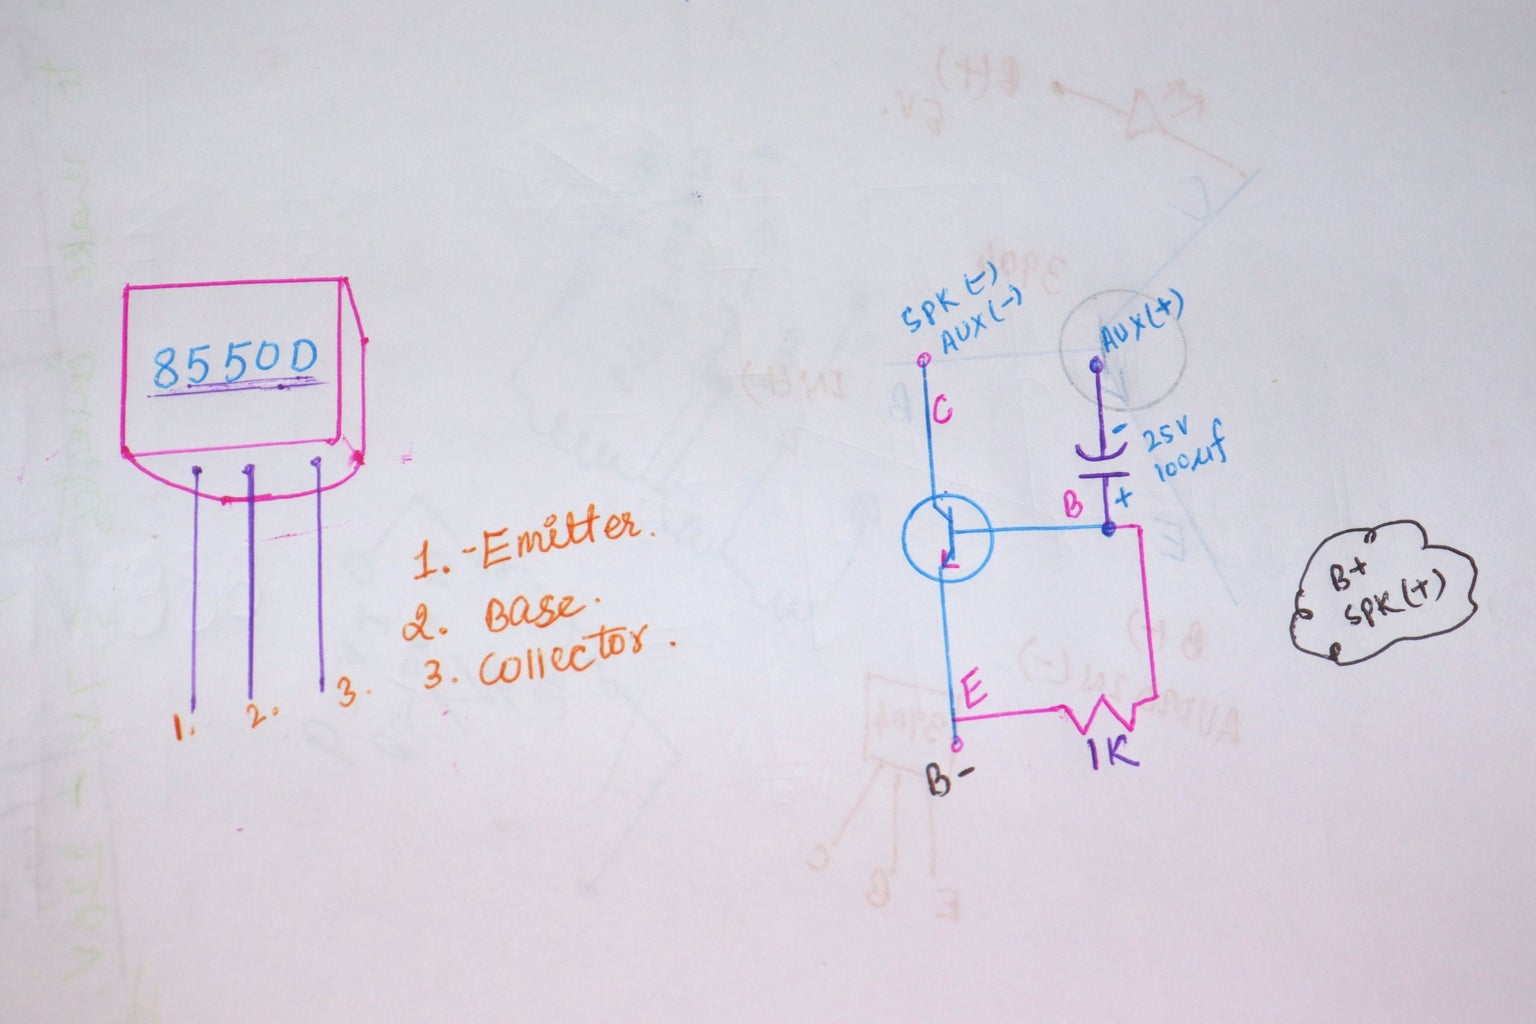 8550D
1. - Emitter.
2. Base.
3. Collector.
1.
2.
3.
SPK (-)
AUX (-)
AUX (+)
C
-
25V
100µf
B
+
E
1K
B-
B+
SPK (+)